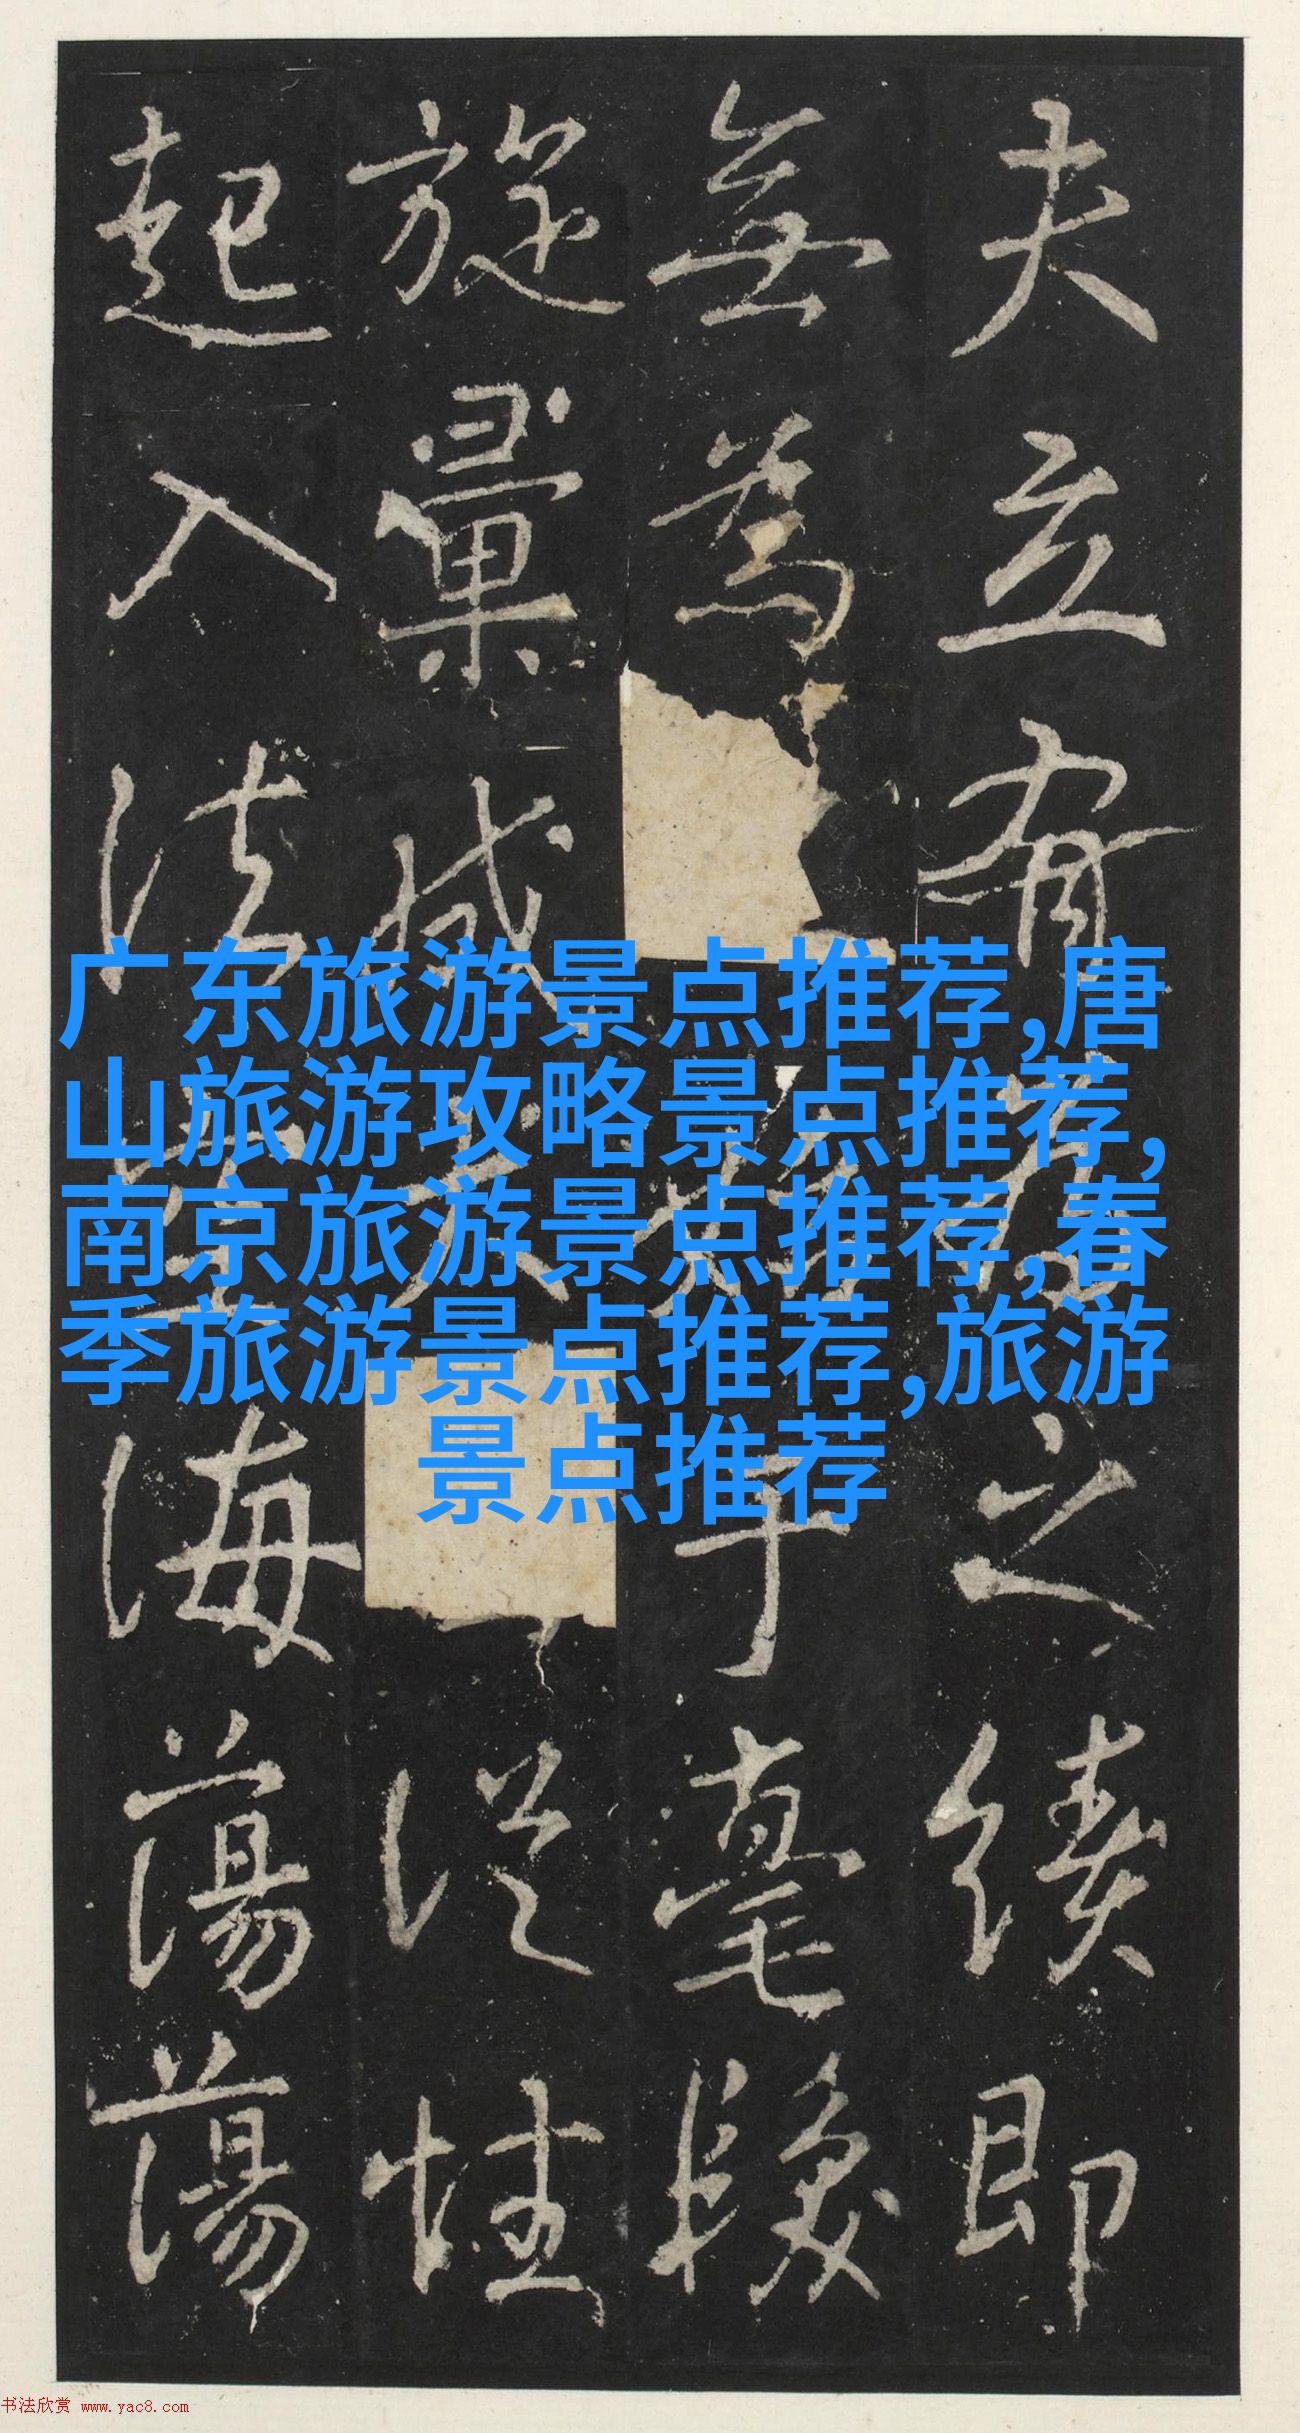 夫立有之績即
無為于毫髮
旋彙從性
起入法海蕩蕩
广东旅游景点推荐,唐
山旅游攻略景点推荐,
南京旅游景点推荐,春
季旅游景点推荐,旅游
景点推荐
书法欣赏 www.yac8.com